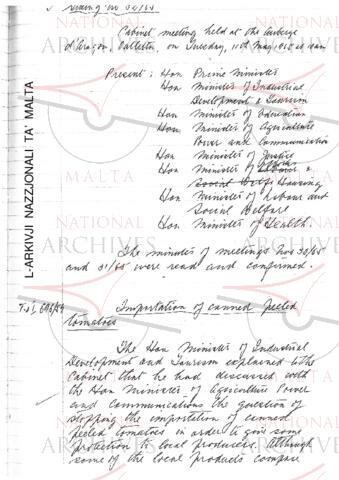 Meeting No 32/65
Cabinet meeting held at the Auberge
d'Aragon, Valletta, on Tuesday, 11th May, 1965 at
Present: Hon Prime Minister
Hon Minister of Industrial
Development & Tourism
Hon Minister of Education
Hon Minister of Agriculture
Power and Communication
Hon Minister of Justice
Hon Minister of Works &
Housing
Hon Minister of Labour and
Social Welfare
Hon Minister of Health.
The minutes of meetings Nos 30/65
and 31/65 were read and confirmed.
Importation of canned peeled
tomatoes
The Hon Minister of Industrial
Development and Tourism explained to the
Cabinet that he had discussed with
the Hon Minister of Agriculture Power
and Communications the question of
stopping the importation of canned
peeled tomatoes in order to give some
protection to local producers. Although
some of the local products compare
L-ARKIVJI NAZZJONALI TA' MALTA
NATIONAL
ARCHIVES
MALTA